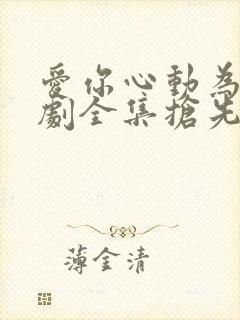 愛你心動為
劇全集搶先
薄金清